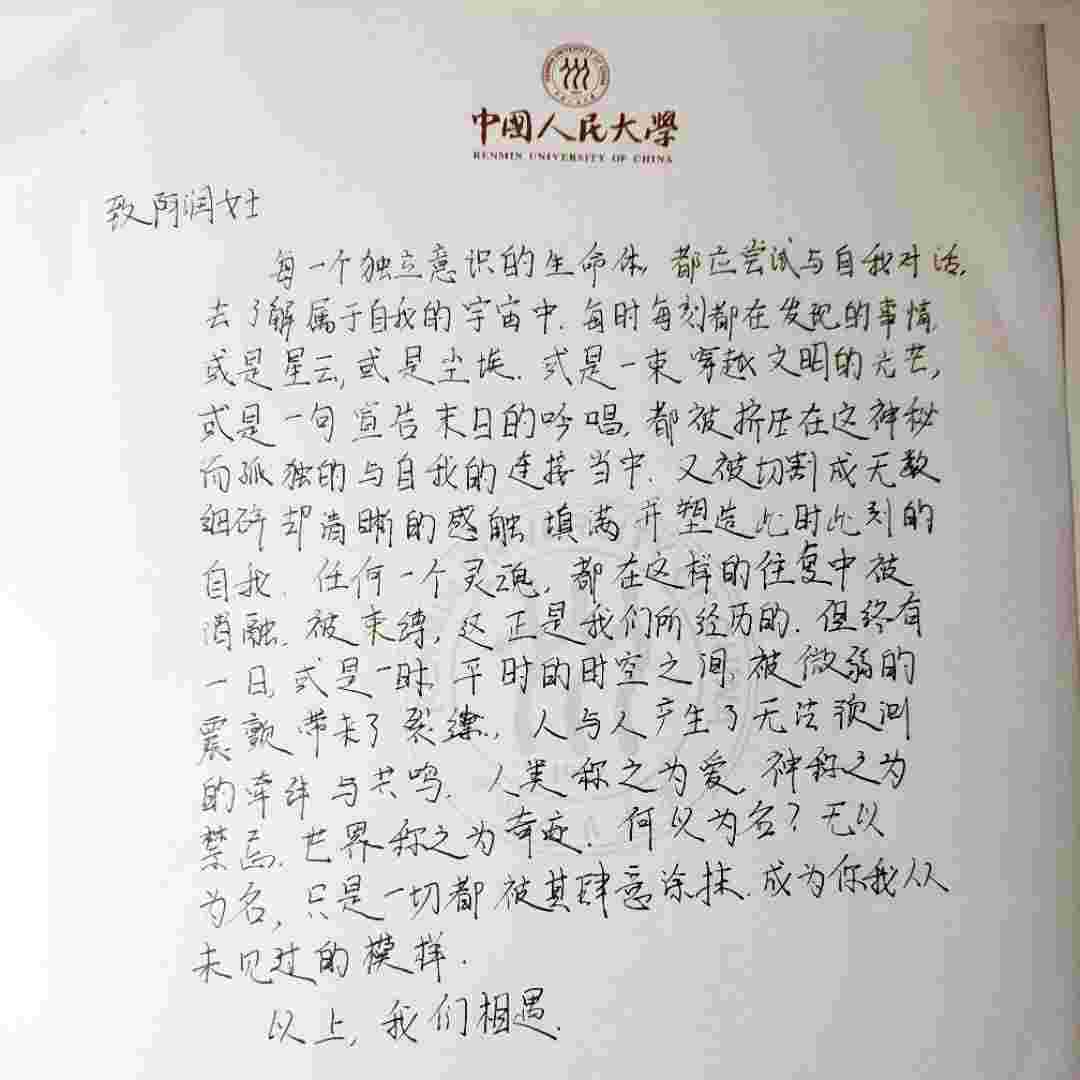 RENMIN UNIVERSITY OF CHINA
中國人民大學
RENMIN UNIVERSITY OF CHINA
致阿润女士
每一个独立意识的生命体,都应尝试与自我对话,
去了解属于自我的宇宙中,每时每刻都在发现的事情,
或是星云,或是尘埃,或是一束穿越文明的光芒,
或是一句宣告末日的吟唱,都被挤压在这神秘
而孤独的与自我的连接当中,又被切割成无数
细碎却清晰的感触填满并塑造此时此刻的
自我.任何一个灵魂,都在这样的往复中被
消融.被束缚,这正是我们所经历的.但终有
一日,或是一时,平时的时空之间,被微弱的
震颤带来了裂缝,人与人产生了无法预测
的牵绊与共鸣.人类称之为爱,神称之为
禁忌,世界称之为奇迹.何以为名?无以
为名,只是一切都被其肆意涂抹.成为你我从
未见过的模样.
以上,我们相遇.